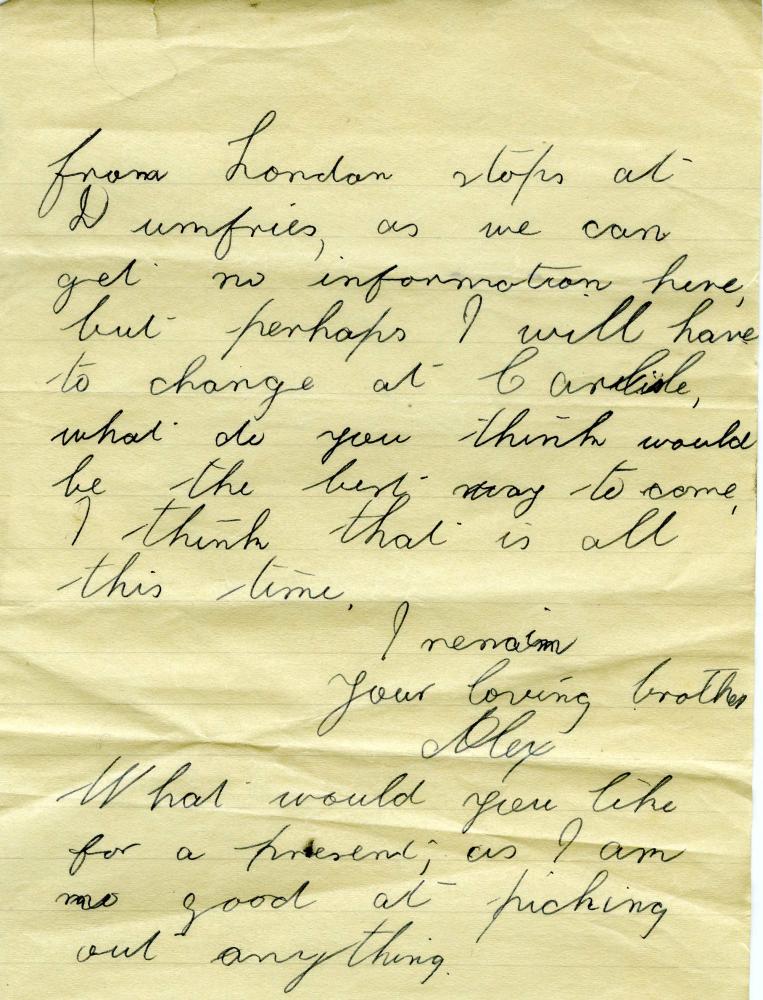 from London stops at
Dumfries, as we can
get no information here,
but perhaps I will have
to change at Carlisle,
what do you think would
be the best way to come,
I think that is all
this time,
I remain
Your loving brother
Alex
What would you like
for a present; as I am
no good at picking
out anything.